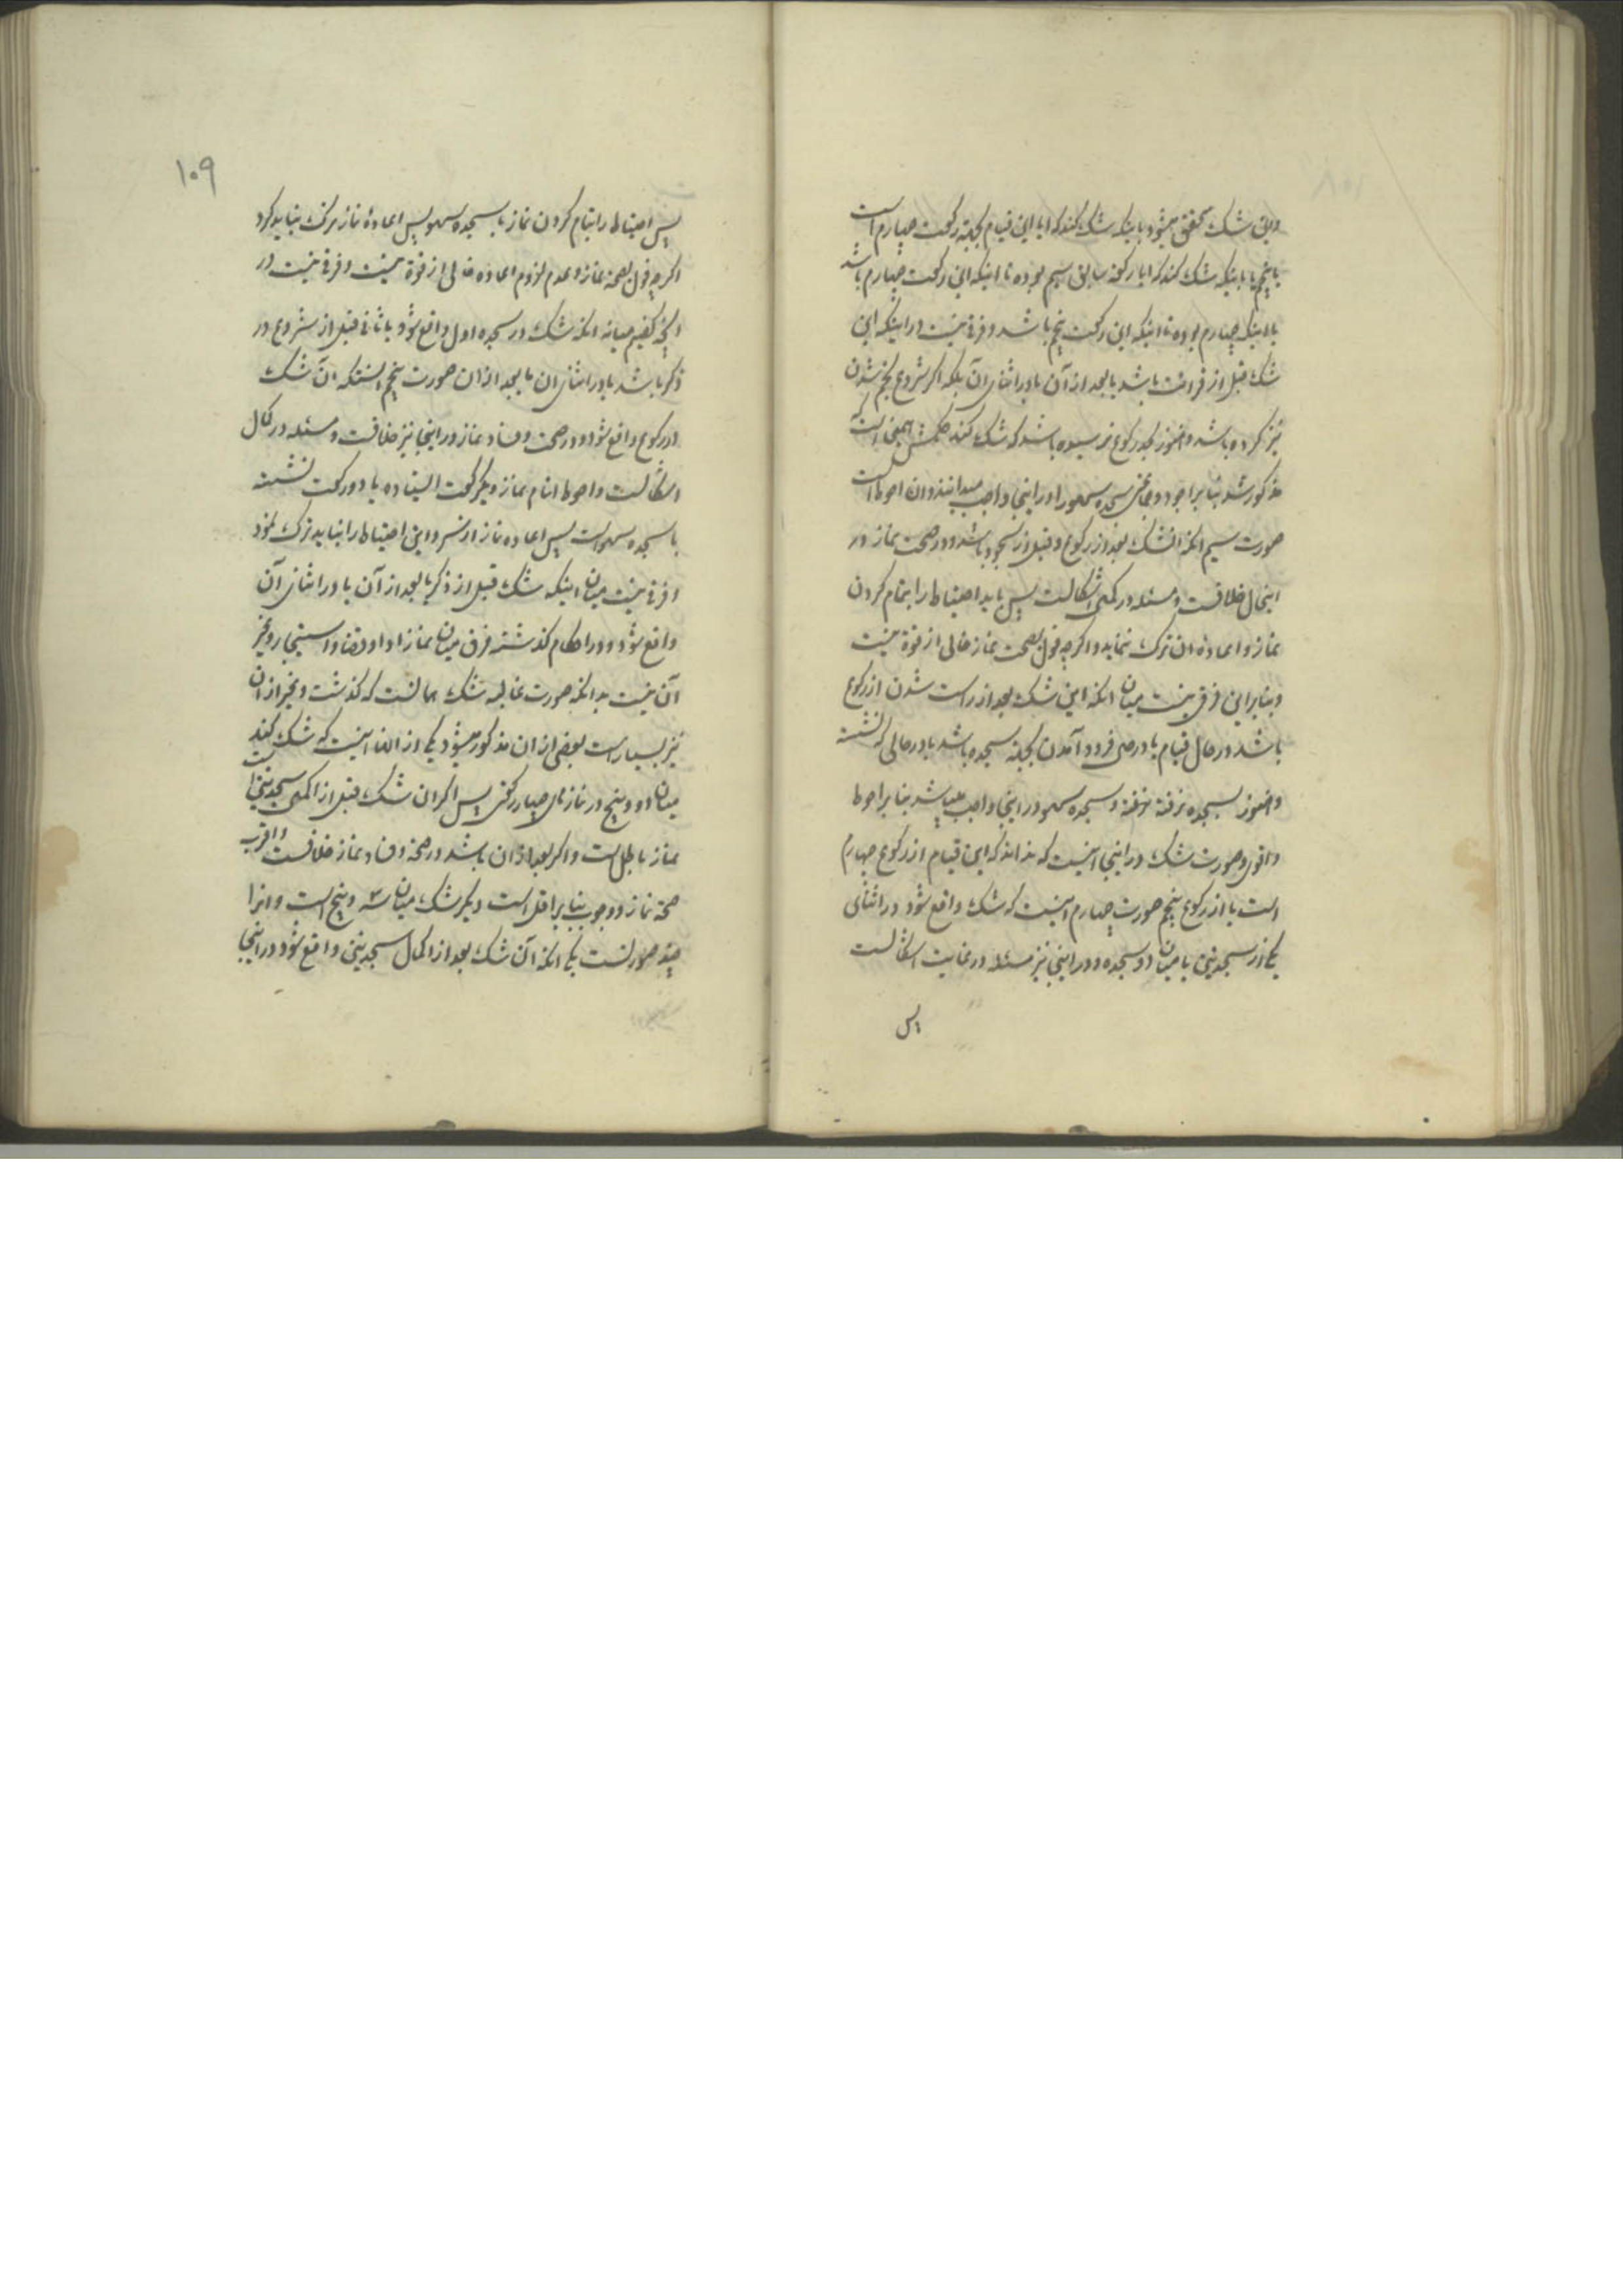 واین شک محقق میشود باینکه شک کند که ایا این قیام بجهة رکعت چهارم است
یا پنجم یا باینکه شک کند که ایا رکعة سابق سیم بوده تا اینکه این رکعت چهارم باشد
یا اینکه چهارم بوده تا اینکه این رکعت پنجم باشد و فرقی نیست در اینکه این
شک قبل از قرائت باشد یا بعد از آن یا در اثنای آن بلکه اگر شروع بخم شدن
نیز کرده باشد و هنوز بحد رکوع نرسیده باشد که شک کند حکمش همین است که
مذکور شد بنا بر اجود و بعضی سجده سهو را در اینجا واجب میدانند و ان احوط است
صورت سیم انکه انشک بعد از رکوع و قبل از سجود باشد و در صحت نماز در
اینحال خلافست و مسئله در کمال اشکالست پس باید احتیاط را بتمام کردن
نماز و اعادهٔ ان ترک ننماید و اگرچه قول بصحت نماز خالی از قوة نیست
و بنا براین فرقی نیست میان انکه این شک بعد از راست شدن از رکوع
باشد در حال قیام یا در حین فرود آمدن بجهة سجده باشد یا در حالی که نشسته
و هنوز بسجده نرفته و سجده سهو در اینجا واجب میباشد بنا بر احوط
و اقوی و صورت شک در اینجا اینست که نداند که این قیام از رکوع چهارم
است یا از رکوع پنجم صورت چهارم اینست که شک واقع شود در اثنای
یکی از سجدتین یا میان دو سجده و در اینجا نیز مسئله در غایت اشکالست
پس
۱۰۹
پس احتیاط را بتمام کردن نماز با سجده سهو پس اعادهٔ نماز ترک نباید کرد
اگرچه قول بصحة نماز و عدم لزوم اعاده خالی از قوة نیست و فرقی نیست در
انچه گفتیم میانه انکه شک در سجده اول واقع شود یا ثانی قبل از شروع در
ذکر باشد یا در اثنای ان یا بعد از ان صورت پنجم انستکه ان شک
در رکوع واقع شود و در صحت و فساد نماز در اینجا نیز خلافست و مسئله در کمال
اشکالست و احوط اتمام نماز و یکرکعت ایستاده یا دو رکعت نشسته
با سجده سهو است پس اعاده نماز از سر و این احتیاط را نباید ترک نمود
و فرقی نیست میان اینکه شک قبل از ذکر یا بعد از آن یا در اثنای آن
واقع شود و در احکام گذشته فرق میان نماز ادا و قضا و استیجار و غیر
آن نیست بدانکه صورت غالبه شک همانست که گذشت و غیر از ان
نیز بسیار است بعضی از ان مذکور میشود یکی از انها اینست که شک کند
میان دو و پنج در نماز های چهار رکعتی پس اگر ان شک قبل از اکمال سجدتین است
نماز باطل است و اگر بعد از ان باشد در صحة و فساد نماز خلافست و اقرب
صحة نماز و وجوب بنا بر اقل است دیگر شک میان سه و پنج است و انرا
چند صورتست یکی انکه آن شک بعد از اکمال سجدتین واقع شود در اینجا